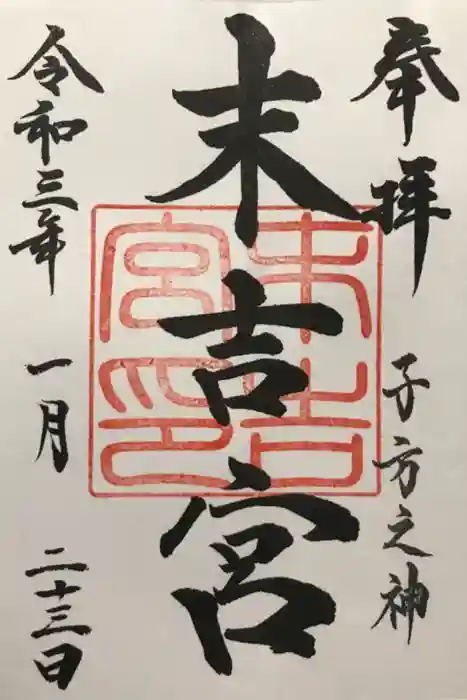 奉拝
子方之神
末吉宮
末吉宮印
令和三年
一月
二十三日